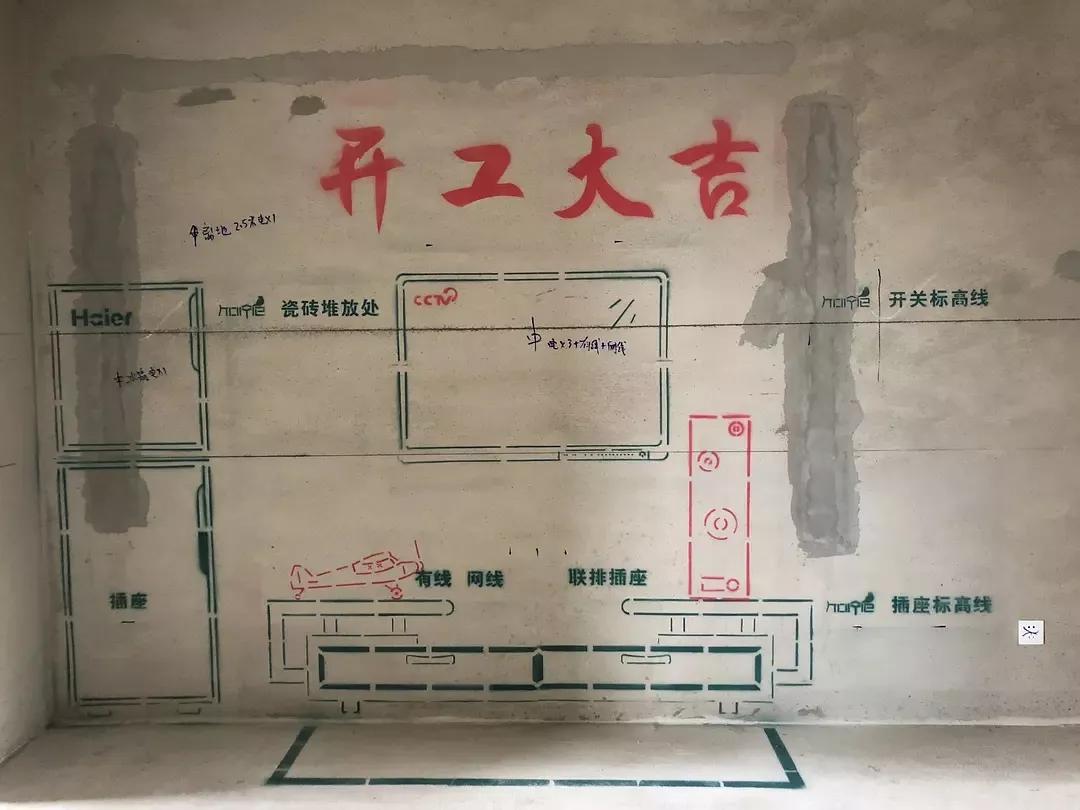 开工大吉
离地2.5米电X1
Haier
瓷砖堆放处
CCTV
开关标高线
电X3+有线+网线
冰箱电X1
有线 网线
联排插座
插座
插座标高线